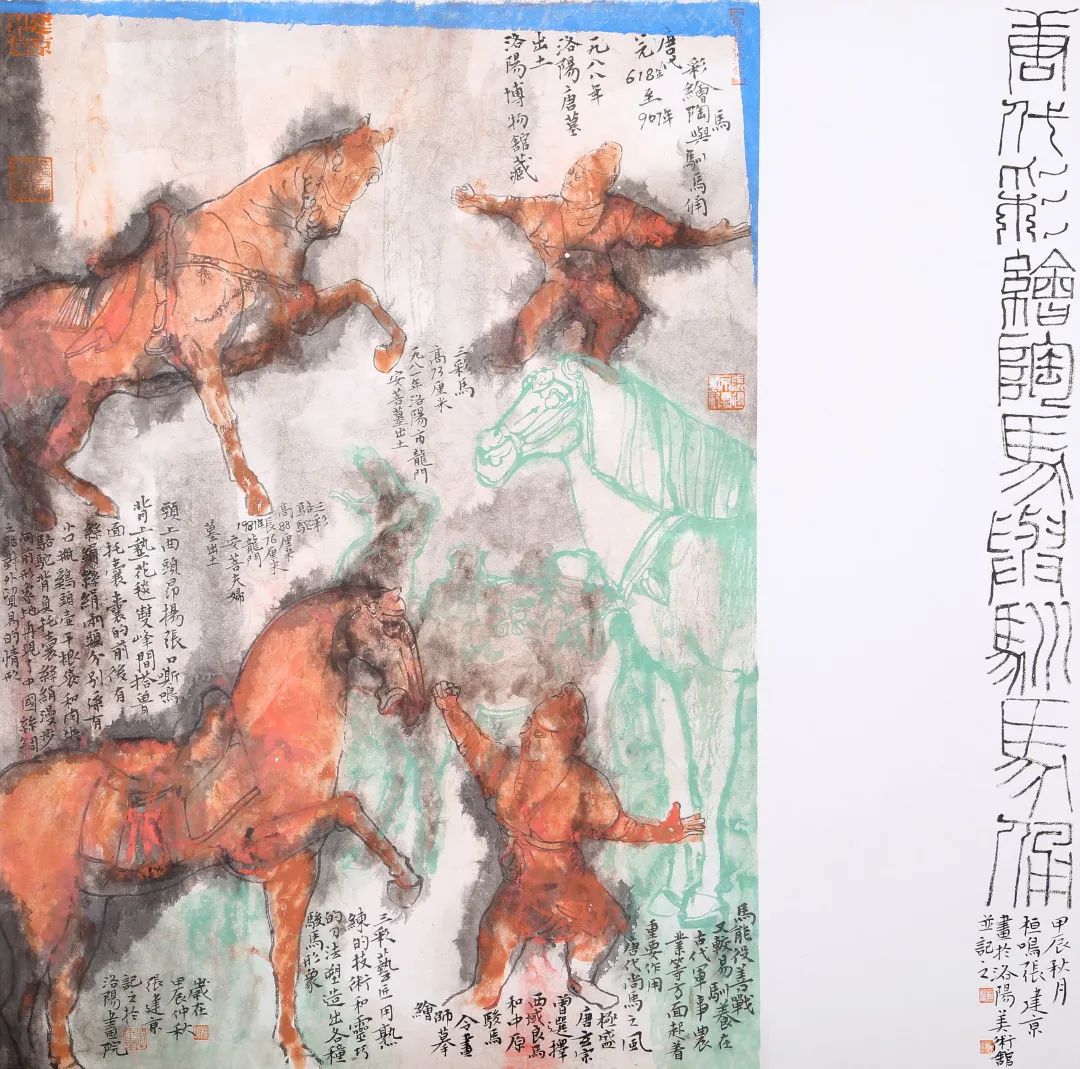 唐代彩繪陶馬與馴馬俑
甲辰秋月
桓鳴張建京
畫於洛陽美術館
並記之
彩繪陶馬與馴馬俑
唐代
元618年至907年
一九八八年
洛陽唐墓
出土
洛陽博物館藏
三彩馬
高73厘米
一九八一年洛陽市龍門
安菩墓出土
三彩
駱駝
高88厘米
長76厘米
1981年龍門
安菩夫婦
墓出土
頸上曲頭昂揚張口嘶鳴
背上墊花毯雙峰間搭兽
面托囊囊的前後有
絲綢絲絹兩頭分别係有
小口瓶鷄頭壺干糧袋和肉块
駱駝背負托囊絲絹漫步
河前形象地再現了中國絲綢
之路對外貿易的情形
馬能役善戰
又較易馴養在
古代軍事農
業等方面起着
重要作用
唐代尚馬之風
極盛
唐玄宗
曾選擇
西域良馬
和中原
駿馬
令畫
師摹
繪
三彩藝匠用熟
練的技術和靈巧
的刀法塑造出各種
駿馬形象
歲在
甲辰仲秋
張建京
記之於
洛陽畫院